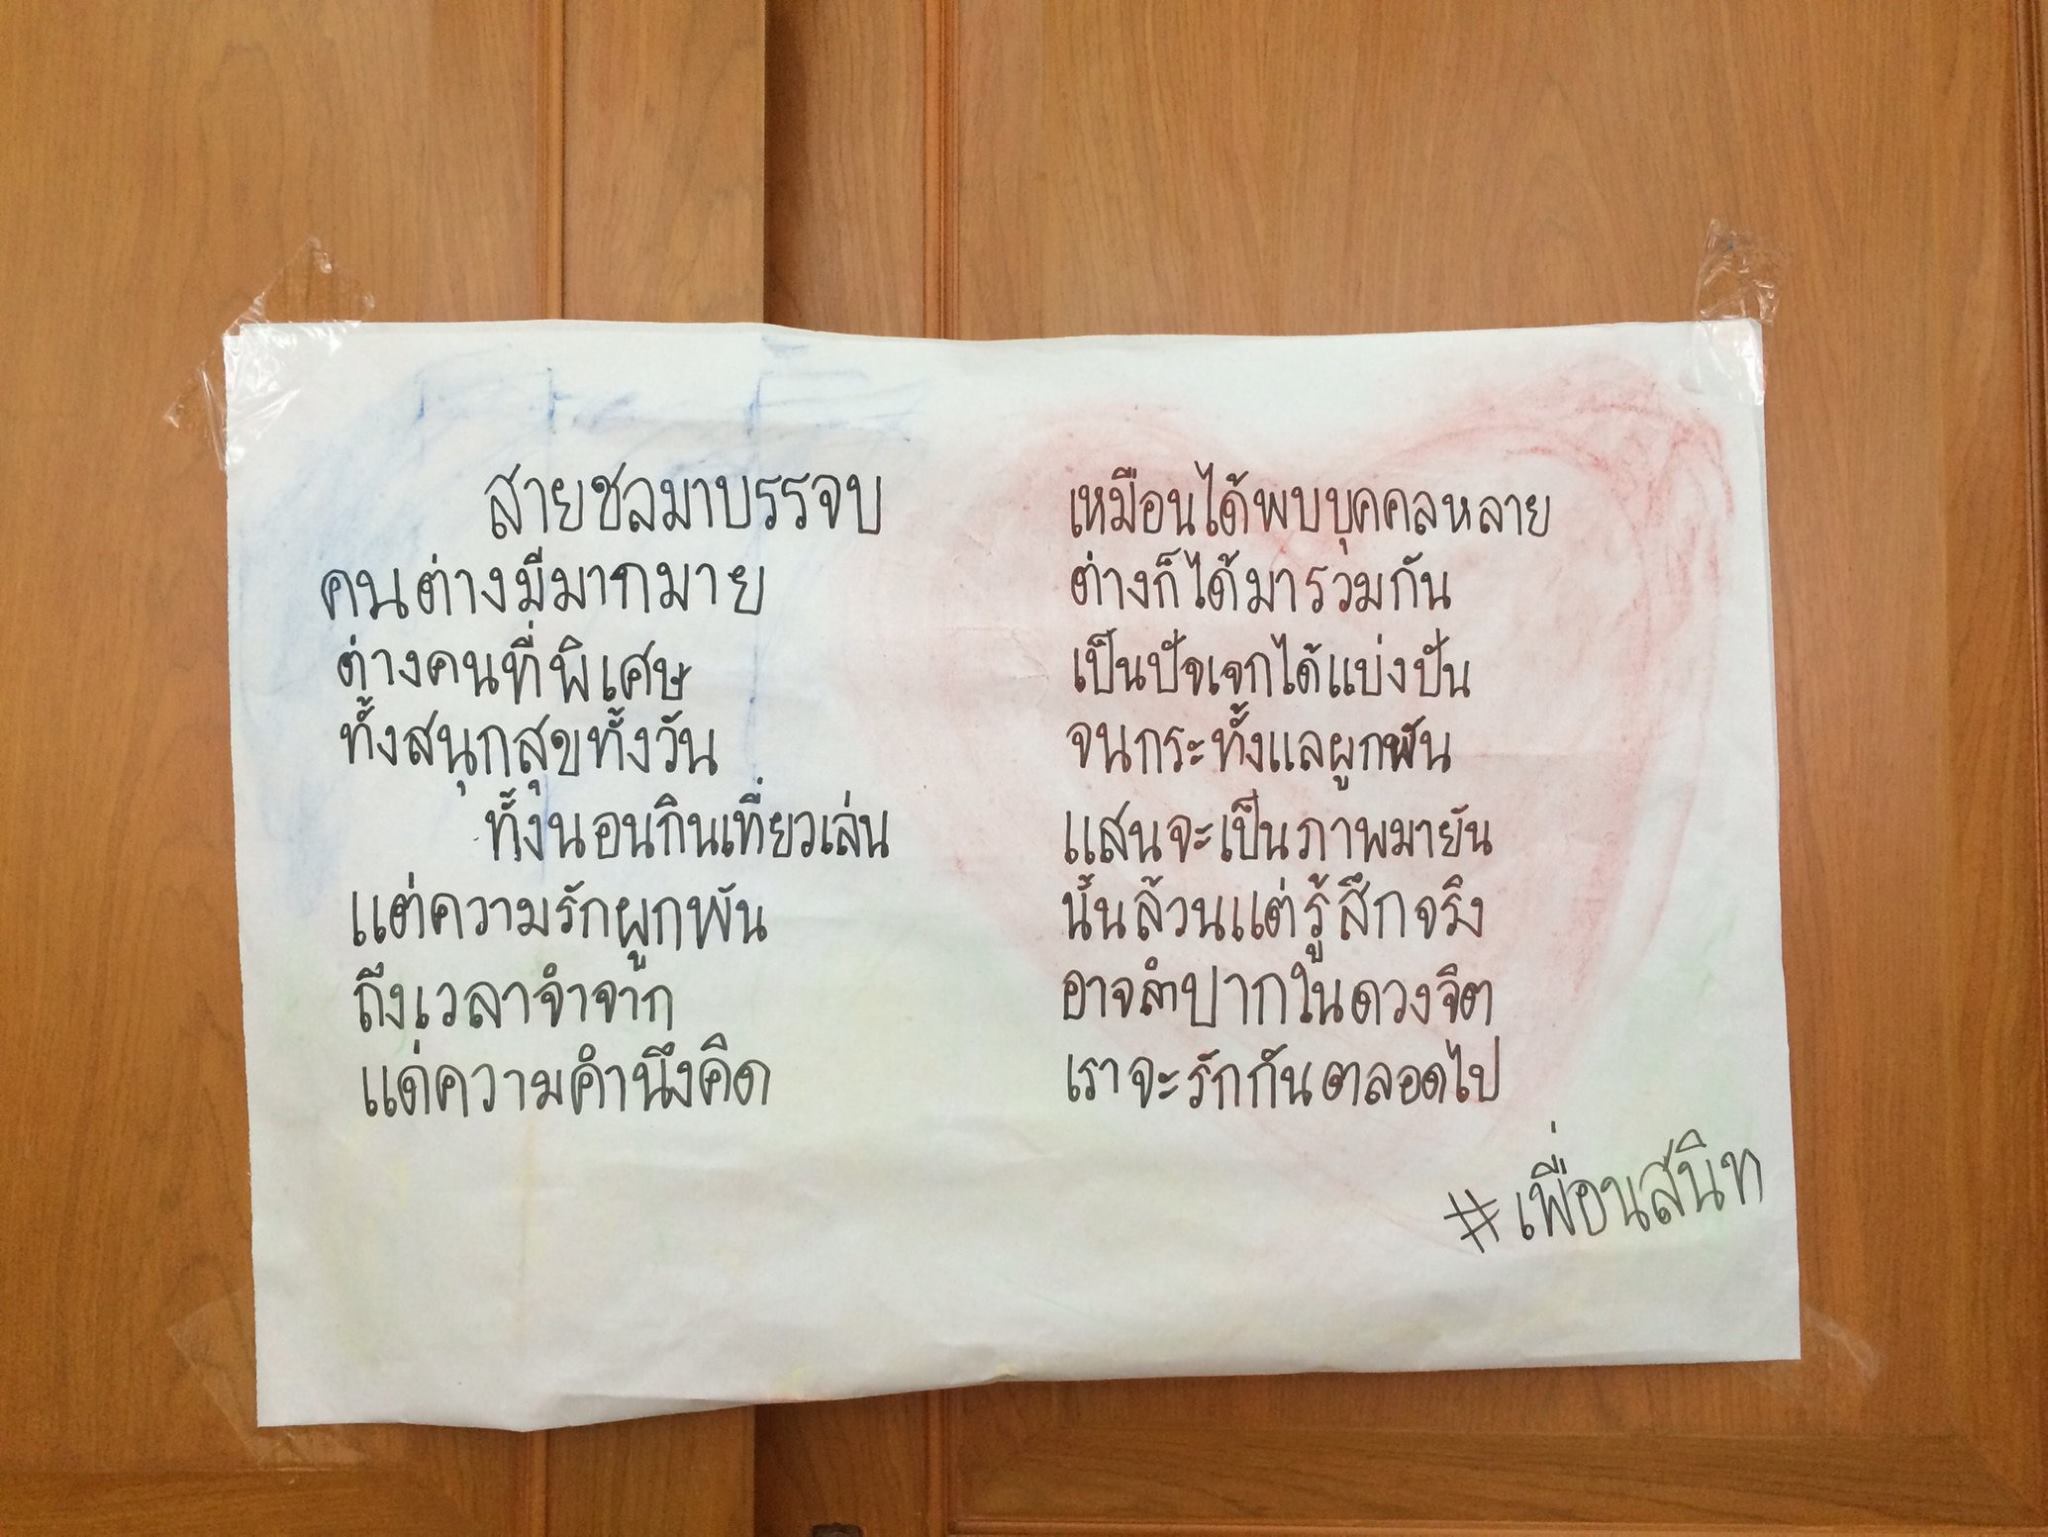 สายชลมาบรรจบ เหมือนได้พบบุคคลหลาย
คนต่างมีมากมาย ต่างก็ได้มารวมกัน
ต่างคนที่พิเศษ เป็นปัจเจกได้แบ่งปัน
ทั้งสนุกสุขทั้งวัน จนกระทั้งแลผูกพัน
ทั้งนอนกินเที่ยวเล่น แสนจะเป็นภาพมายัน
แต่ความรักผูกพัน นั้นล้วนแต่รู้สึกจริง
ถึงเวลาจำจาก อาจลำปากในดวงจิต
แด่ความคำนึงคิด เราจะรักกันตลอดไป
#เพื่อนสนิท